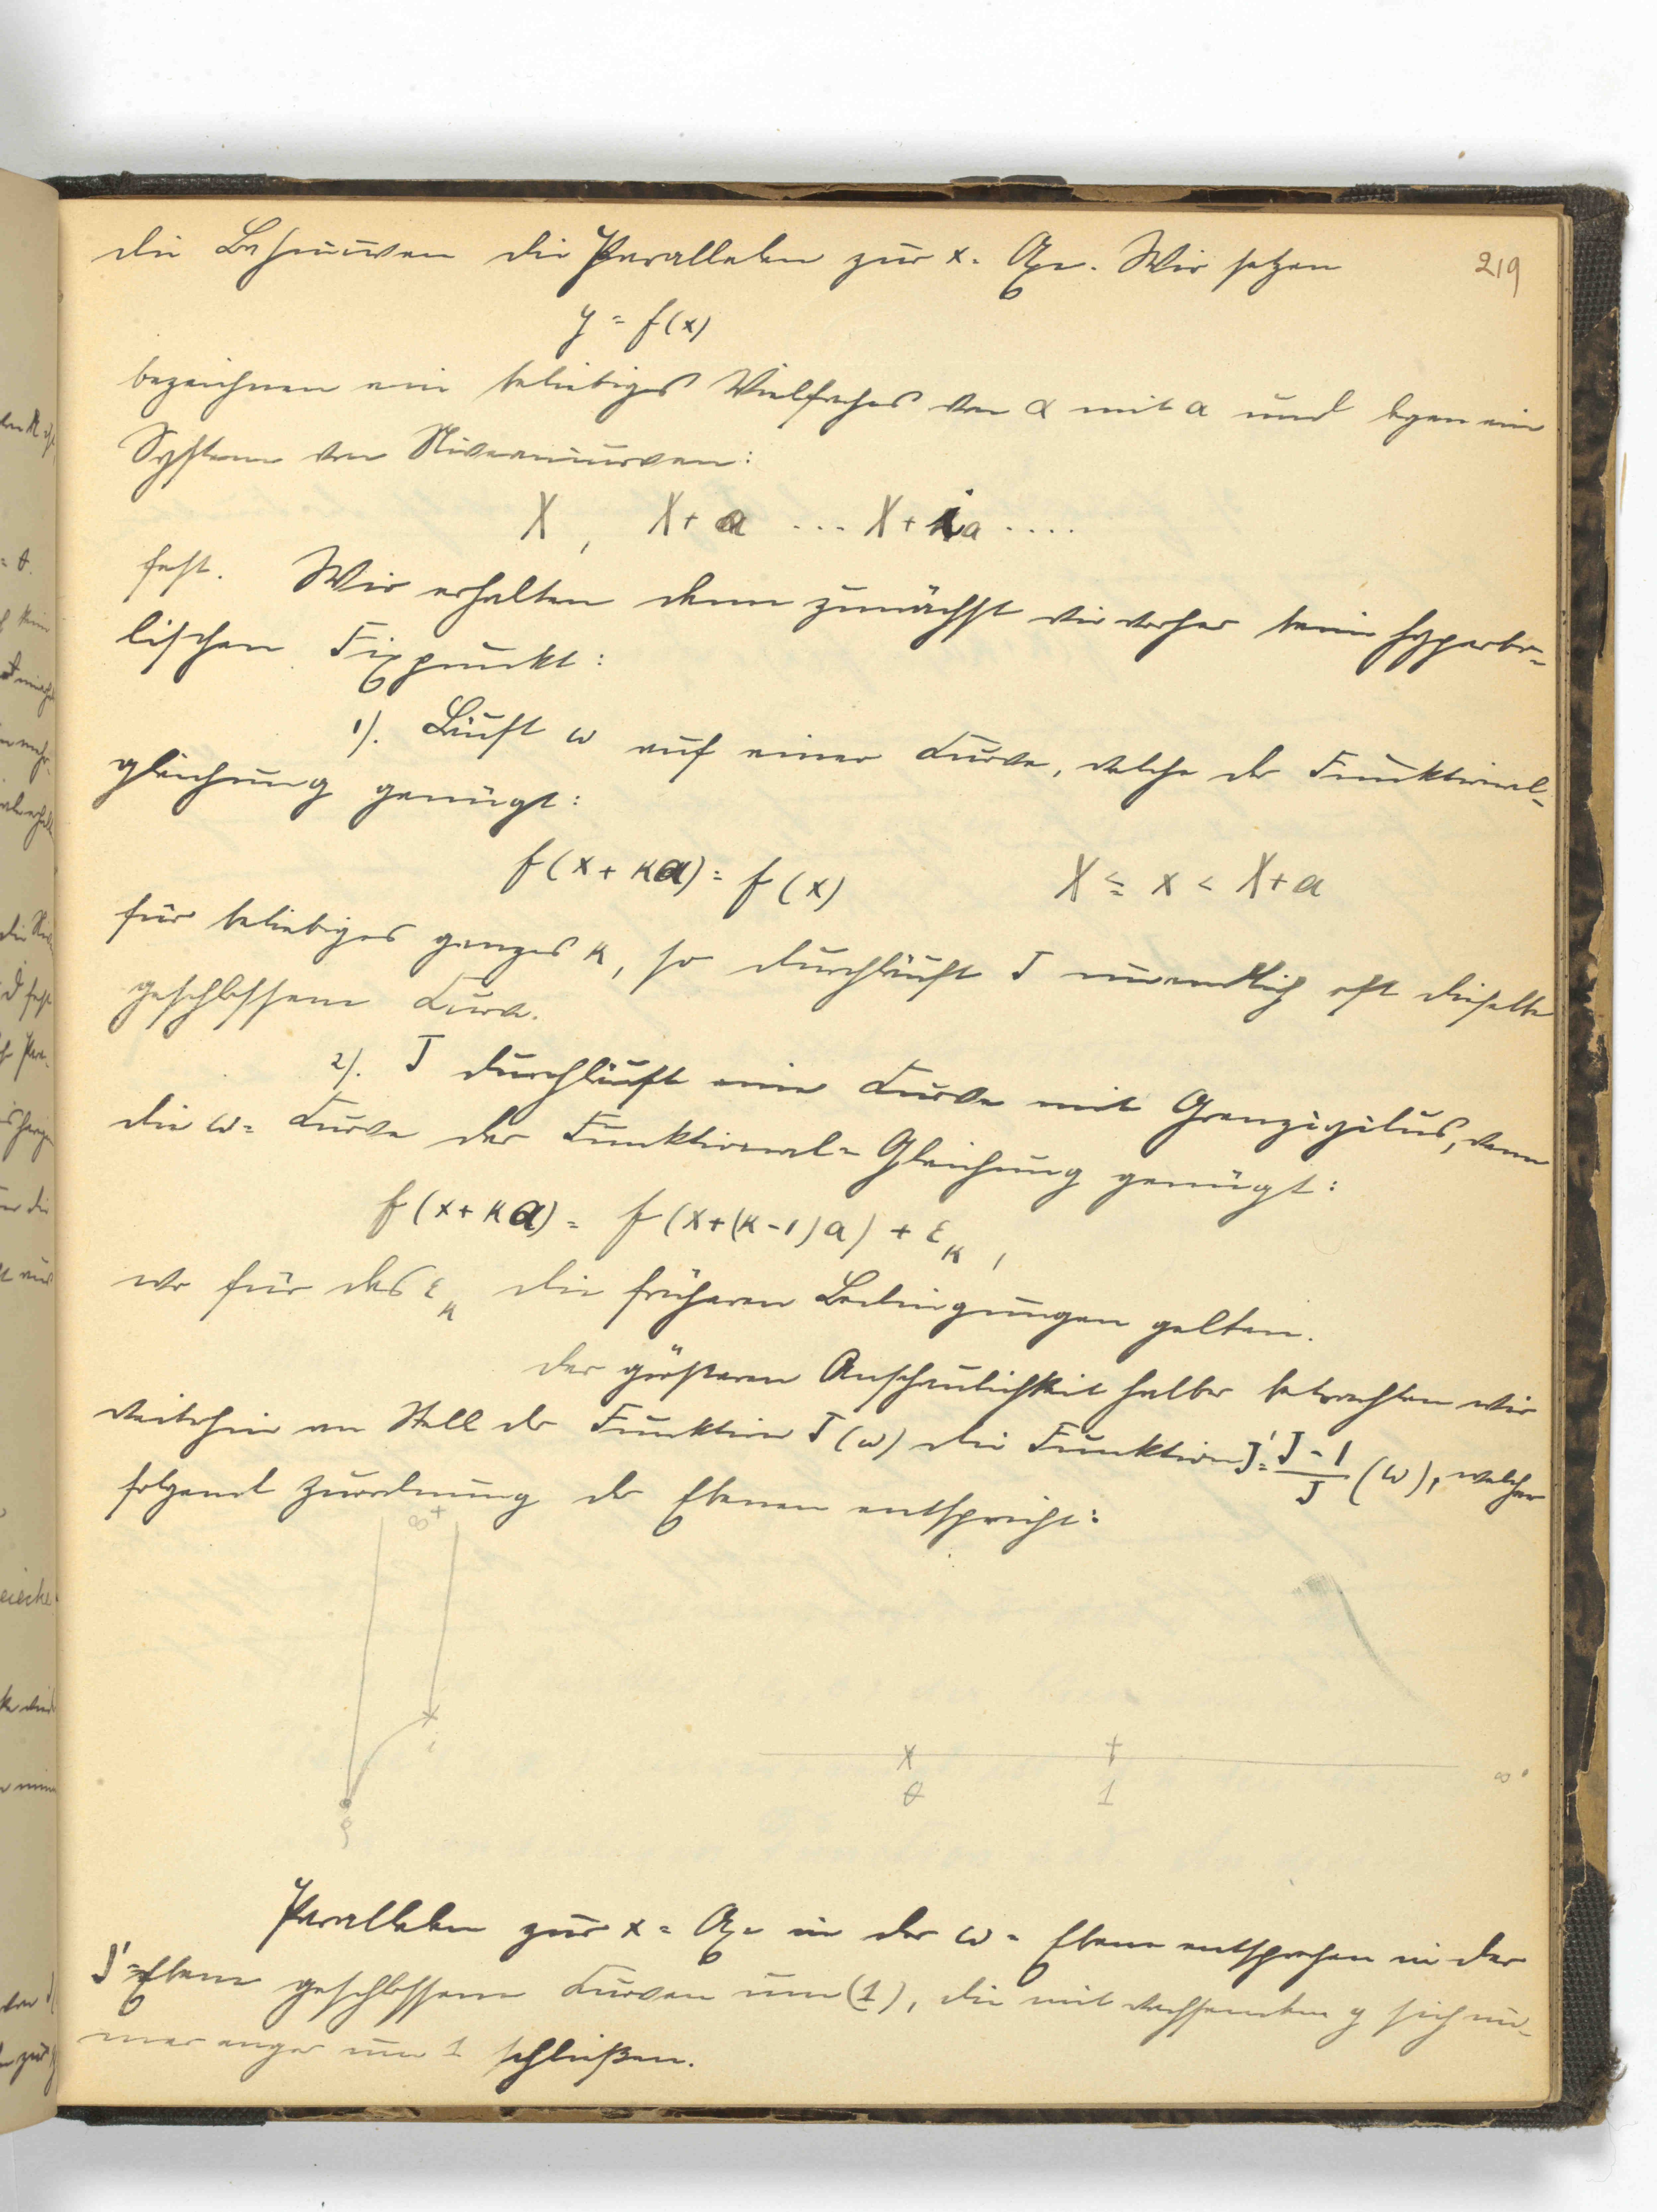 die Bahncurven die Parallelen zur x-Axe. Wir setzen
219
y = f(x)
bezeichnen ein beliebiges Vielfaches von α mit a und legen ein
System von Niveaucurven:
X, X+a ... X+ia ....
fest. Wir erhalten dann zunächst wie vorher beim hyperbo-
lischen Fixpunkt:
1). Läuft ω auf einer Curve, welche der Funktional-
gleichung genügt:
f(x+κa) = f(x) X ≦ x < X+a
für beliebiges ganzes κ, so durchläuft J unendlich oft dieselbe
geschlossene Curve.
2). J durchläuft eine Curve mit Grenzzyklus, wenn
die ω-Curve der Funktional-Gleichung genügt:
f(x+κa) = f(x+(κ-1)a) + ε_κ,
wo für das ε_κ die früheren Bedingungen gelten.
Der größeren Anschaulichkeit halber betrachten wir
weiterhin an Stell der Funktion J(ω) die Funktion J' = (J-1)/J (ω), welcher
folgend Zuordnung der Ebenen entspricht:
∞ +
i
ρ
0 1 ∞
Parallelen zur x-Axe in der ω-Ebene entsprechen in der
J'-Ebene geschlossene Curven um (1), die mit wachsendem y sich im-
mer enger um 1 schließen.